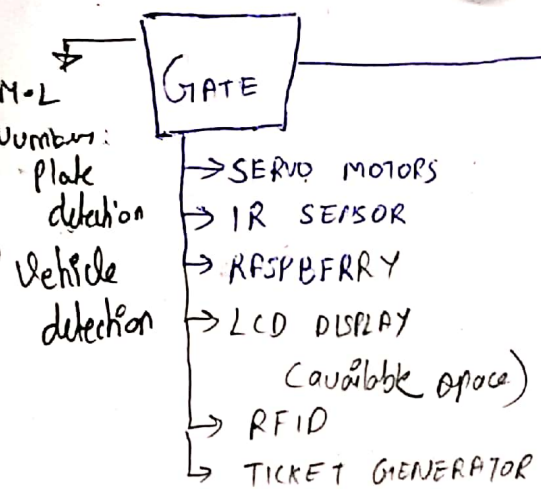 GATE
M.L
Number:
Plate
detection
Vehicle
detection
SERVO MOTORS
IR SENSOR
RASPBERRY
LCD DISPLAY
(available space)
RFID
TICKET GENERATOR